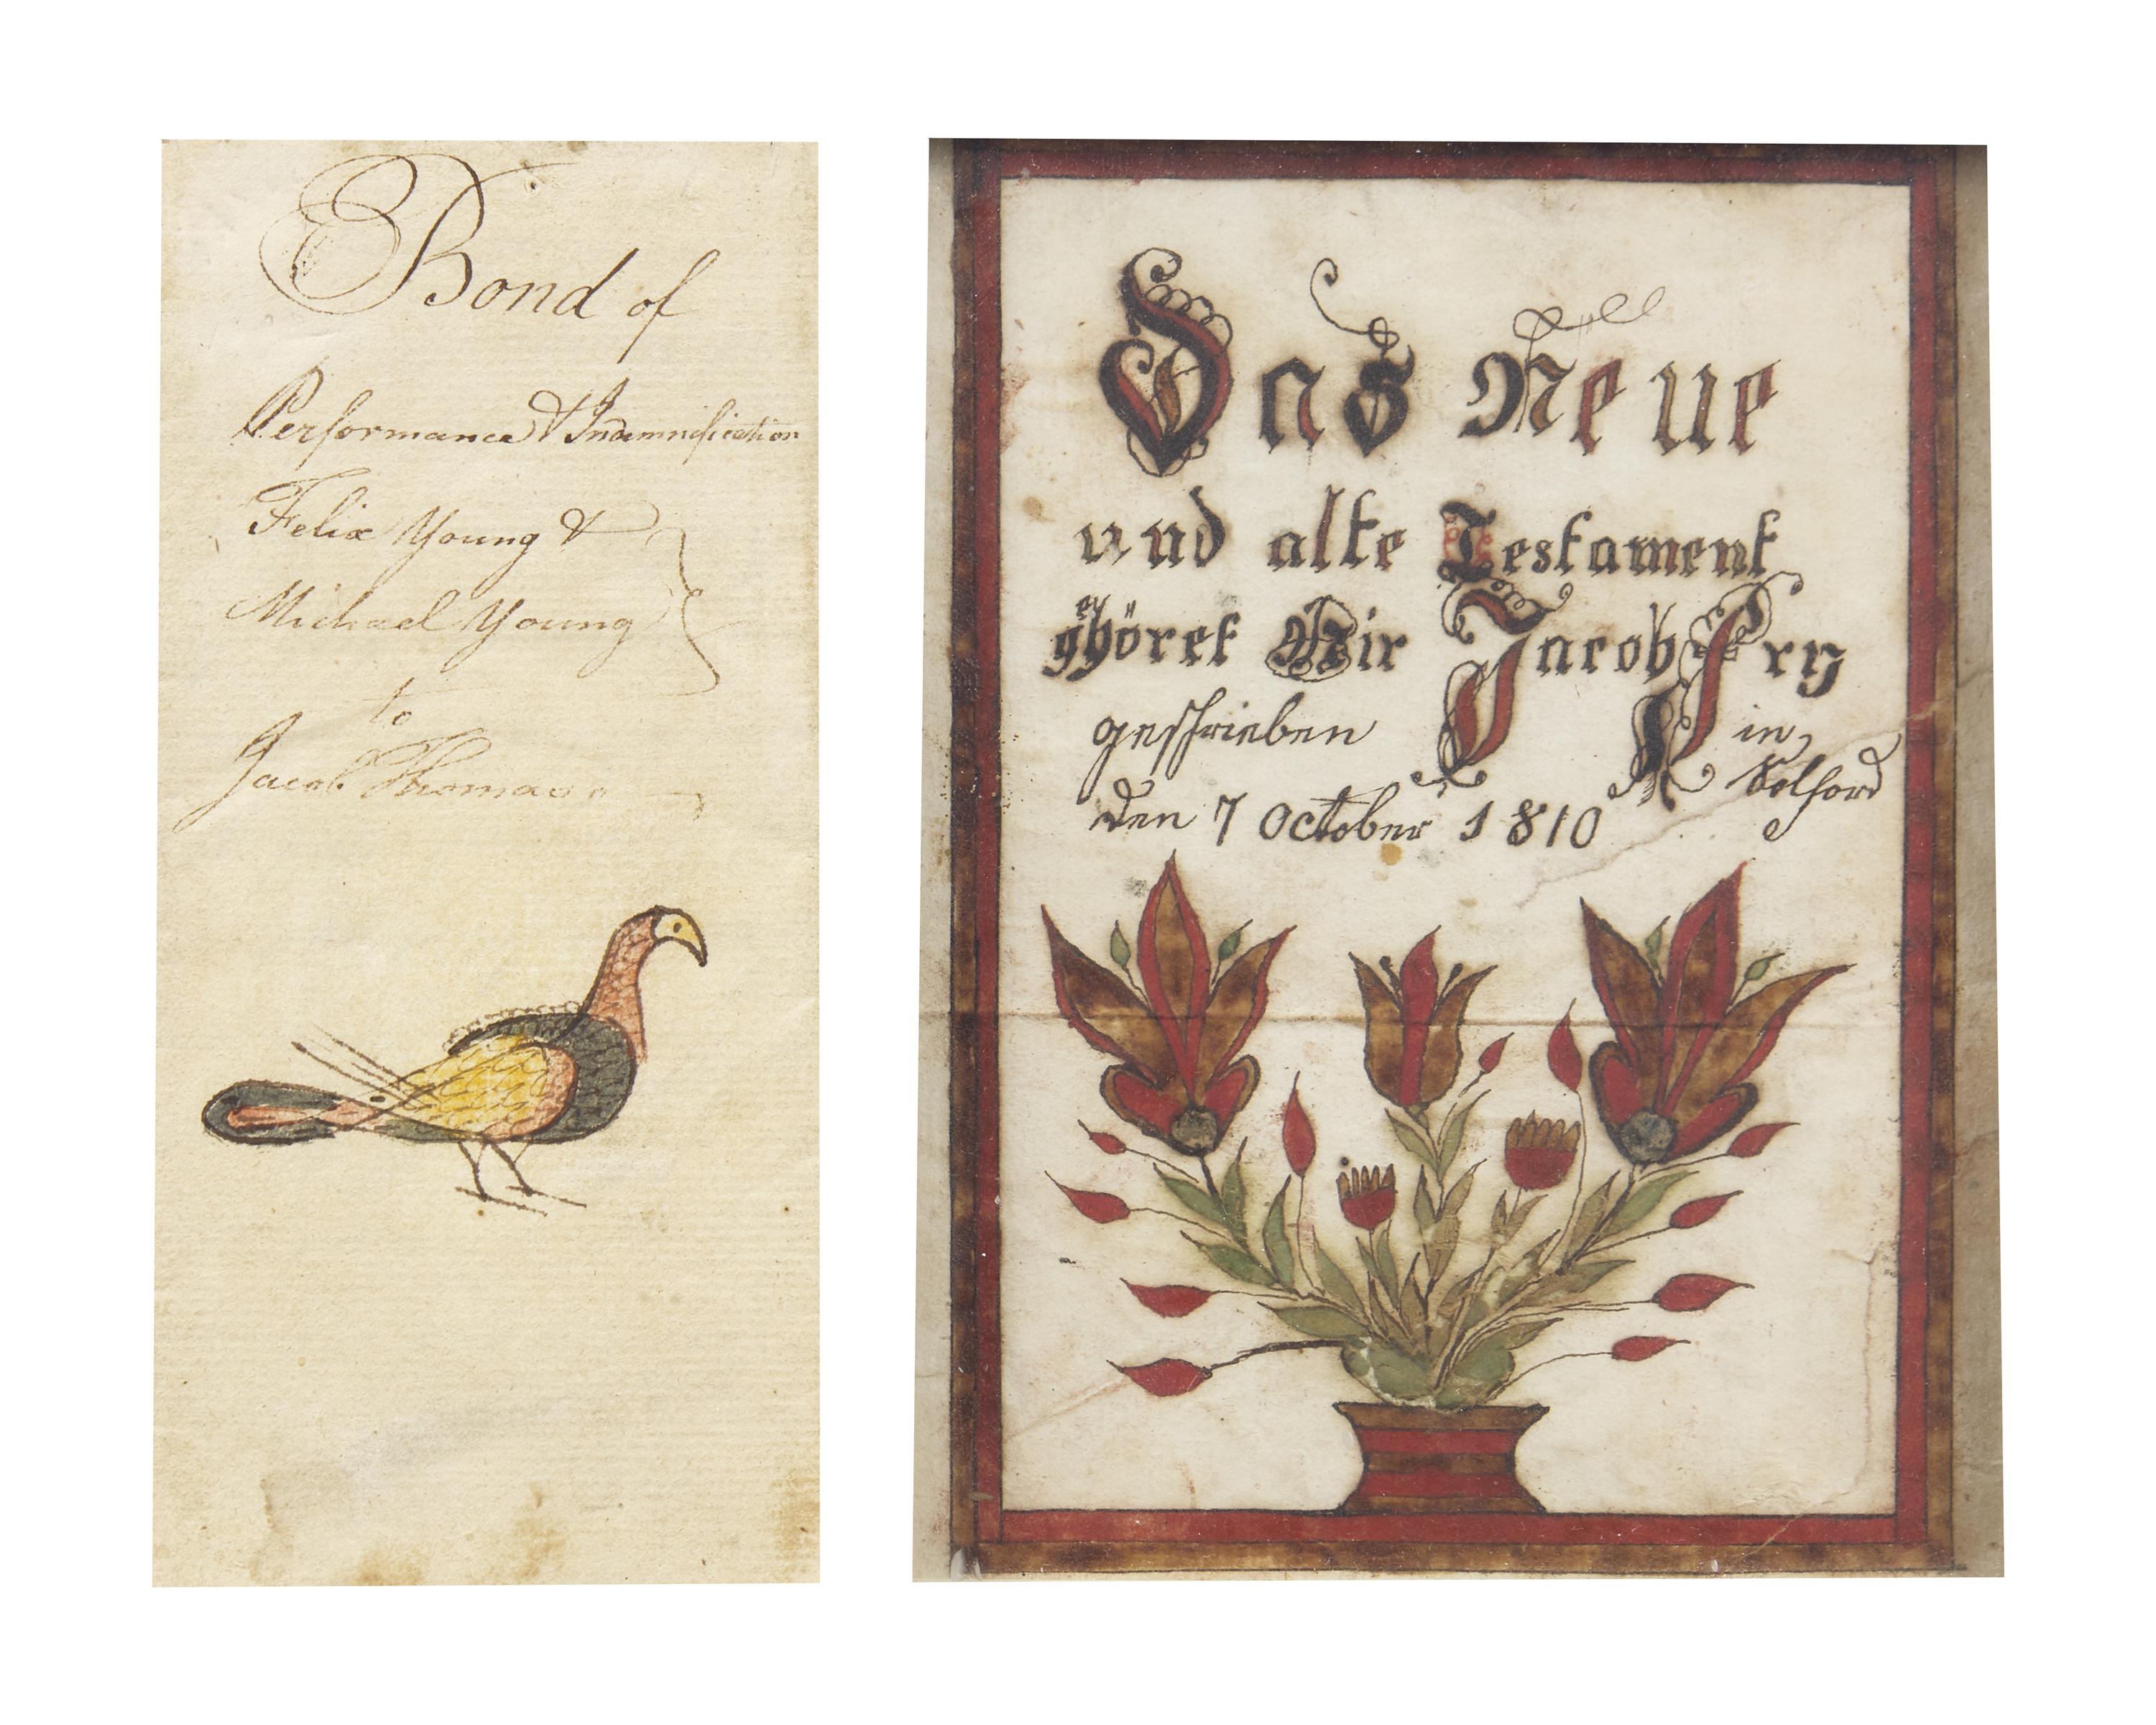 Bond of
Performance & Indemnification
Felix Young &
Michael Young
to
Jacob Thomas
Das Neue
und alte Testament
gehöret Mir Jacob Fry
geschrieben in
Solford
den 7 October 1810